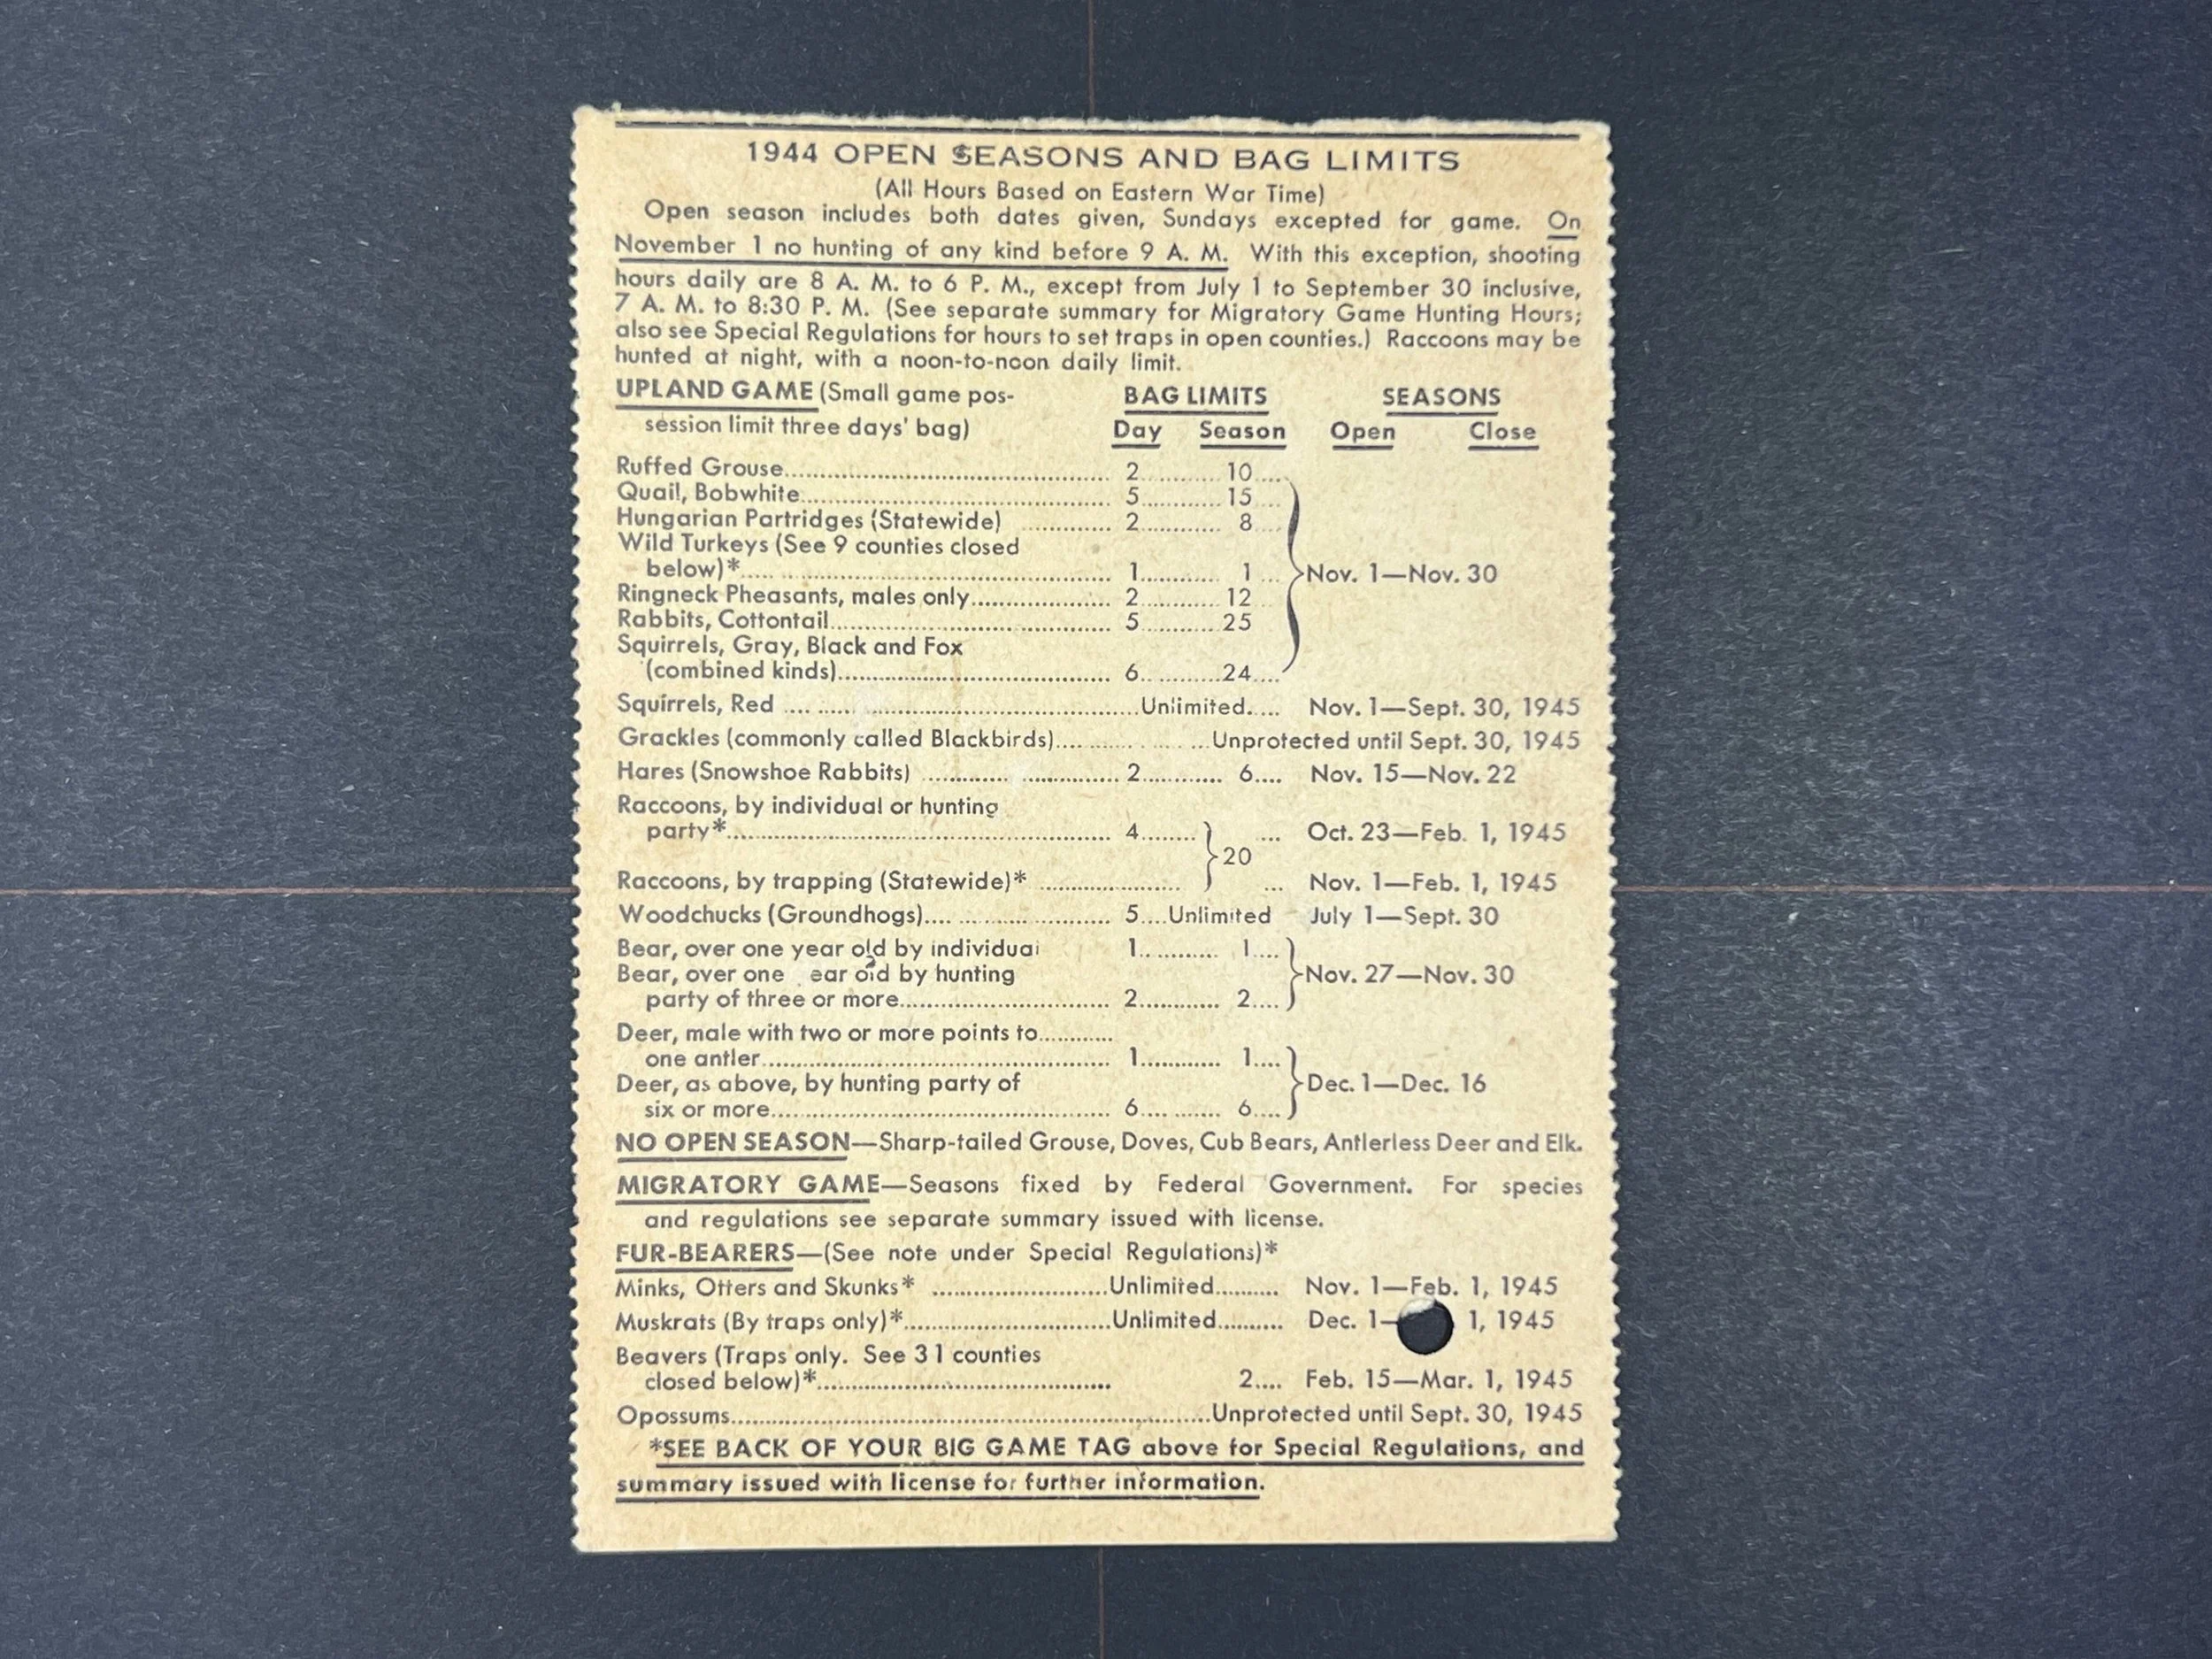 1944 OPEN SEASONS AND BAG LIMITS
(All Hours Based on Eastern War Time)
Open season includes both dates given, Sundays excepted for game. On
November 1 no hunting of any kind before 9 A. M. With this exception, shooting
hours daily are 8 A. M. to 6 P. M., except from July 1 to September 30 inclusive,
7 A. M. to 8:30 P. M. (See separate summary for Migratory Game Hunting Hours;
also see Special Regulations for hours to set traps in open counties.) Raccoons may be
hunted at night, with a noon-to-noon daily limit.
UPLAND GAME (Small game pos- BAG LIMITS SEASONS
session limit three days' bag) Day Season Open Close
Ruffed Grouse 2 10
Quail, Bobwhite 5 15
Hungarian Partridges (Statewide) 2 8
Wild Turkeys (See 9 counties closed
below)* 1 1 Nov. 1—Nov. 30
Ringneck Pheasants, males only 2 12
Rabbits, Cottontail 5 25
Squirrels, Gray, Black and Fox
(combined kinds) 6 24
Squirrels, Red Unlimited Nov. 1—Sept. 30, 1945
Grackles (commonly called Blackbirds) Unprotected until Sept. 30, 1945
Hares (Snowshoe Rabbits) 2 6 Nov. 15—Nov. 22
Raccoons, by individual or hunting
party* 4 Oct. 23—Feb. 1, 1945
20
Raccoons, by trapping (Statewide)* Nov. 1—Feb. 1, 1945
Woodchucks (Groundhogs) 5 Unlimited July 1—Sept. 30
Bear, over one year old by individual 1 1
Bear, over one ear old by hunting Nov. 27—Nov. 30
party of three or more 2 2
Deer, male with two or more points to
one antler 1 1
Deer, as above, by hunting party of Dec. 1—Dec. 16
six or more 6 6
NO OPEN SEASON—Sharp-tailed Grouse, Doves, Cub Bears, Antlerless Deer and Elk.
MIGRATORY GAME—Seasons fixed by Federal Government. For species
and regulations see separate summary issued with license.
FUR-BEARERS—(See note under Special Regulations)*
Minks, Otters and Skunks* Unlimited Nov. 1—Feb. 1, 1945
Muskrats (By traps only)* Unlimited Dec. 1— 1, 1945
Beavers (Traps only. See 31 counties
closed below)* 2 Feb. 15—Mar. 1, 1945
Opossums Unprotected until Sept. 30, 1945
*SEE BACK OF YOUR BIG GAME TAG above for Special Regulations, and
summary issued with license for further information.